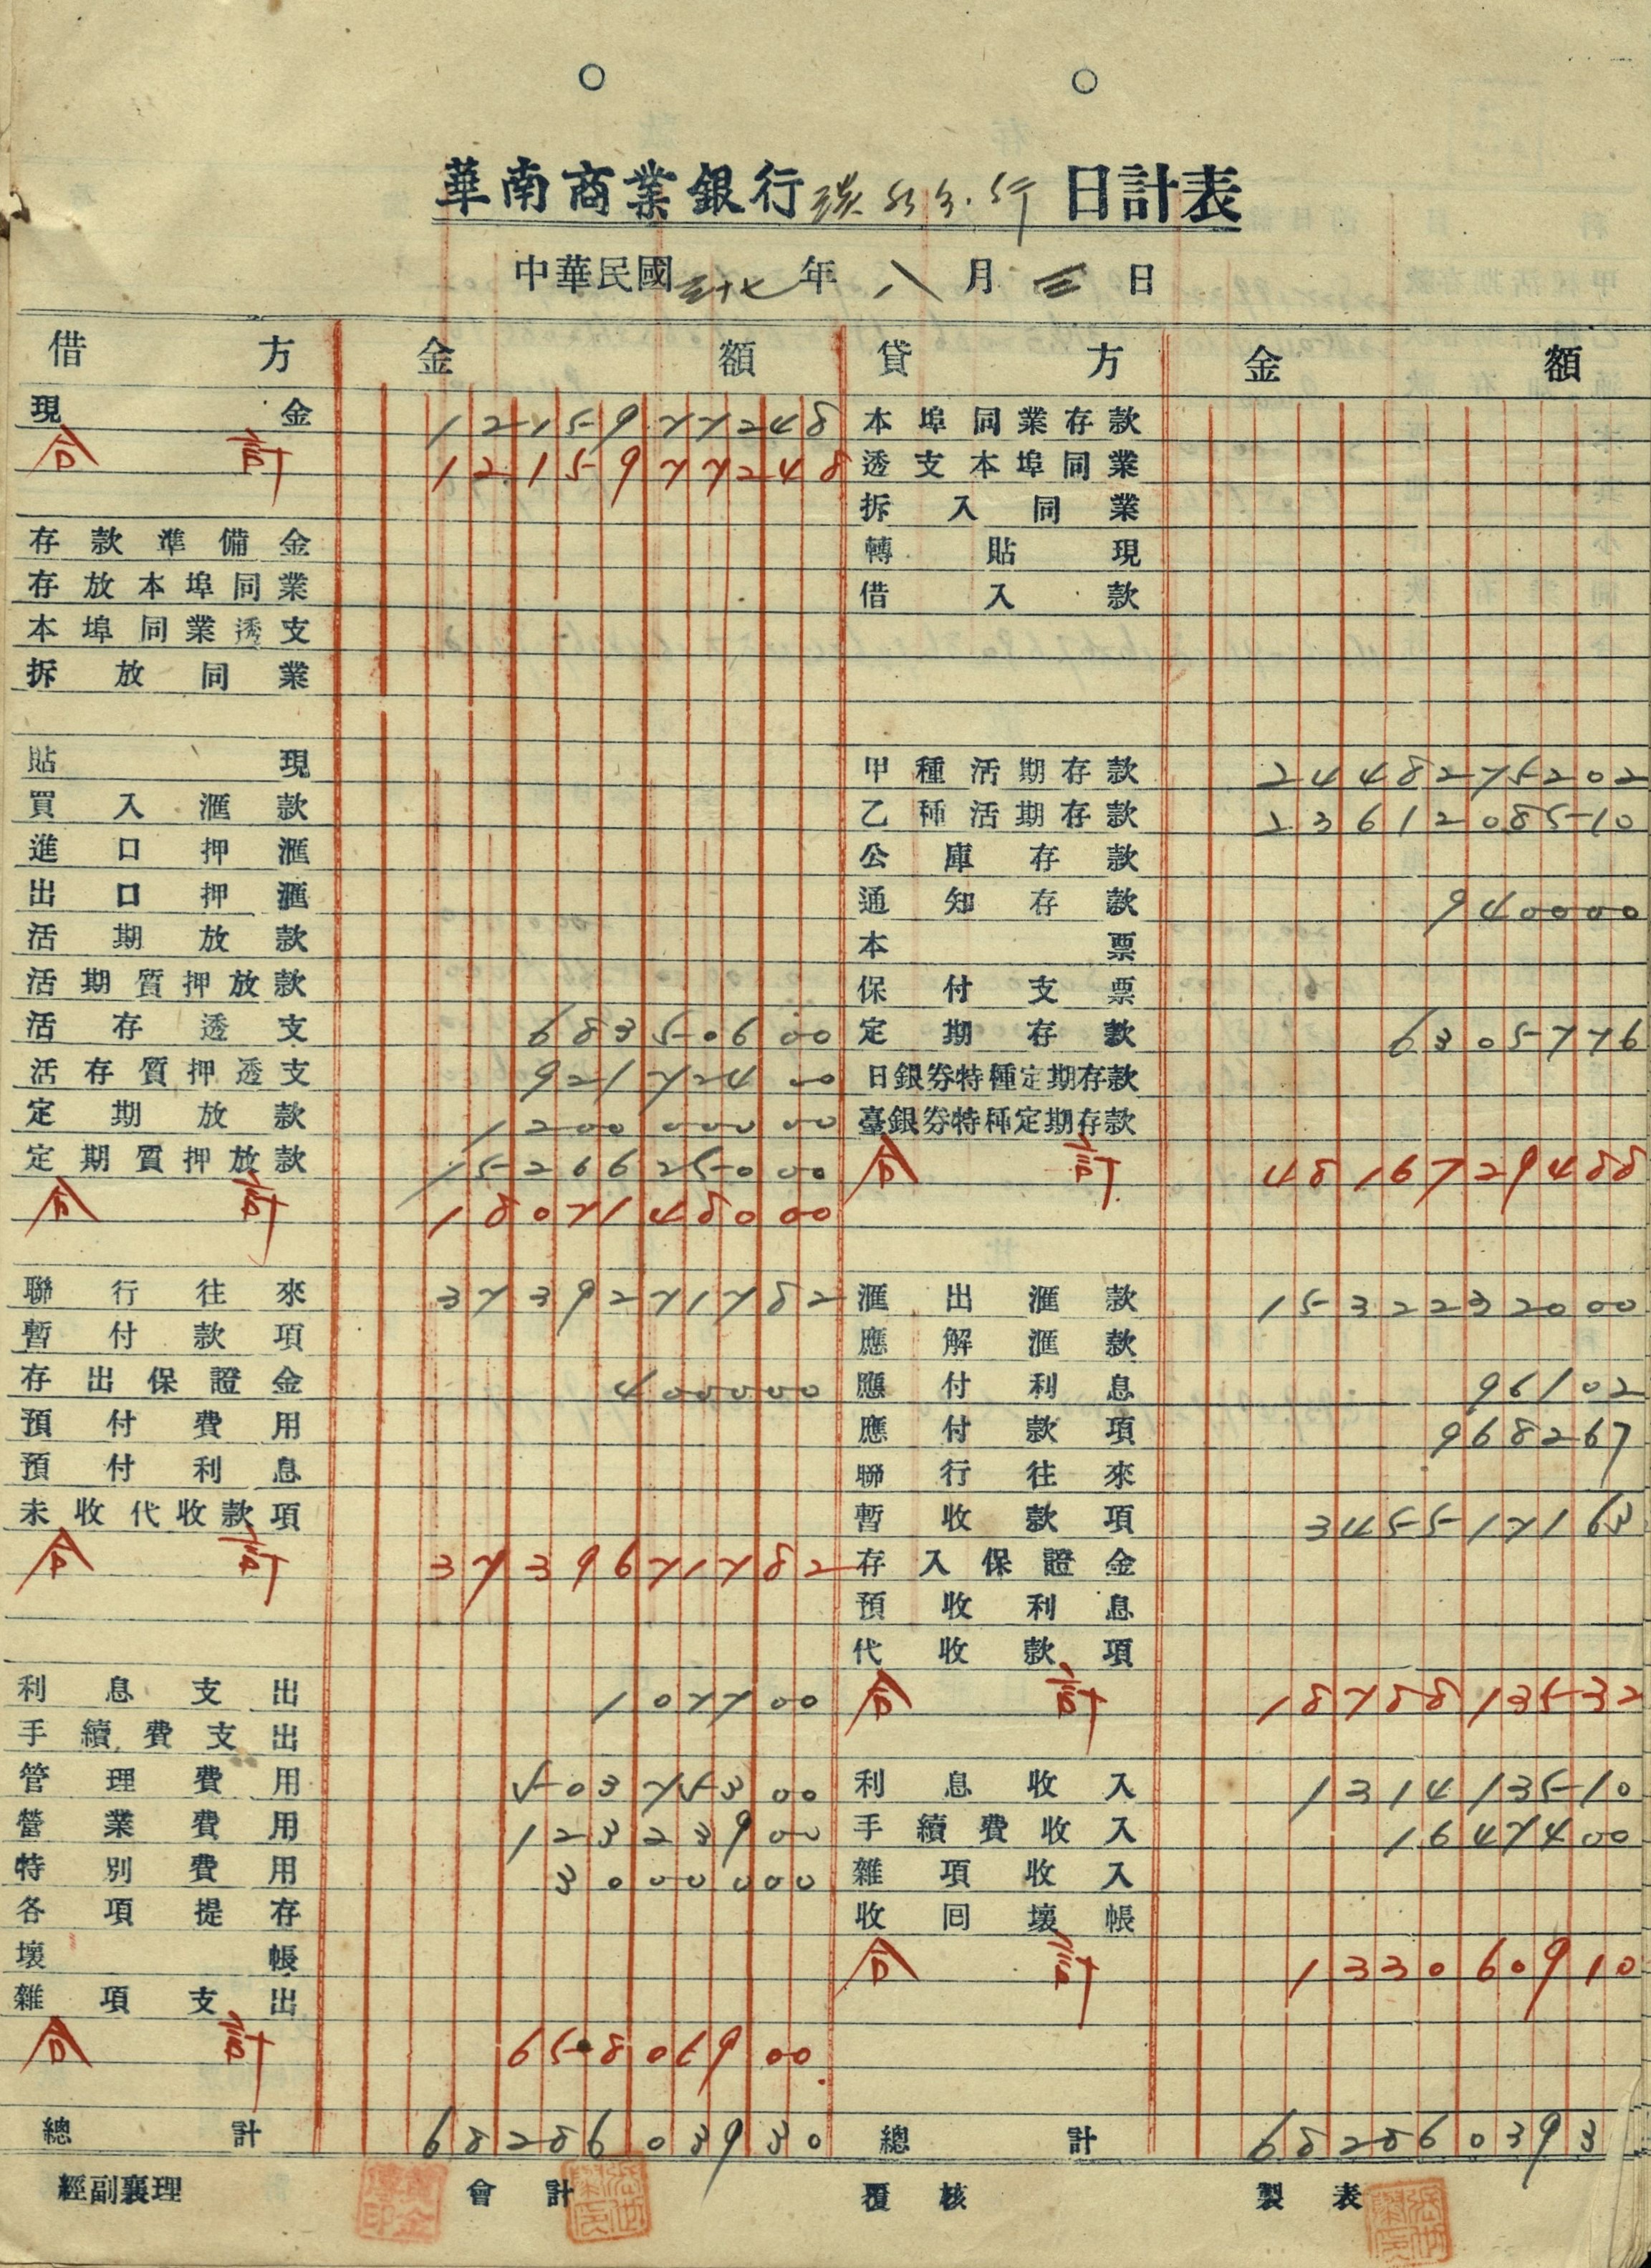 華南商業銀行淡水分行日計表
中華民國三十七年八月三日
借方 金額 貸方 金額
現金 1215977248 本埠同業存款
合計 1215977248 透支本埠同業
拆入同業
存款準備金 轉貼現
存放本埠同業 借入款
本埠同業透支
拆放同業
貼現 甲種活期存款 2448275202
買入滙款 乙種活期存款 2361208510
進口押滙 公庫存款
出口押滙 通知存款 940000
活期放款 本票
活期質押放款 保付支票
活存透支 68350600 定期存款 6305776
活存質押透支 92172400 日銀券特種定期存款
定期放款 120000000 臺銀券特種定期存款
定期質押放款 1526625000 合計 4816729488
合計 1807148000
聯行往來 3739271782 滙出滙款 1532232000
暫付款項 應解滙款
存出保證金 400000 應付利息 96102
預付費用 應付款項 968267
預付利息 聯行往來
未收代收款項 暫收款項 345517163
合計 3739671782 存入保證金
預收利息
代收款項
利息支出 107700 合計 1878813532
手續費支出
管理費用 50375300 利息收入 131413510
營業費用 12323900 手續費收入 1647400
特別費用 3000000 雜項收入
各項提存 收囘壞帳
壞帳 合計 133060910
雜項支出
合計 65806900
總計 6828603930 總計 682860393
經副襄理 會計 覆核 製表